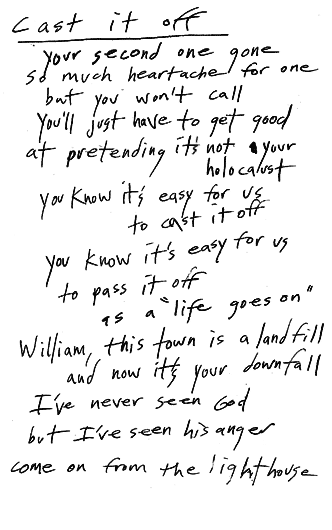 Cast it off
your second one gone
so much heartache for one
but you won't call
You'll just have to get good
at pretending it's not your
holocaust
you know it's easy for us
to cast it off
you know it's easy for us
to pass it off
as a "life goes on"
William, this town is a landfill
and now it's your downfall
I've never seen God
but I've seen his anger
come on from the lighthouse